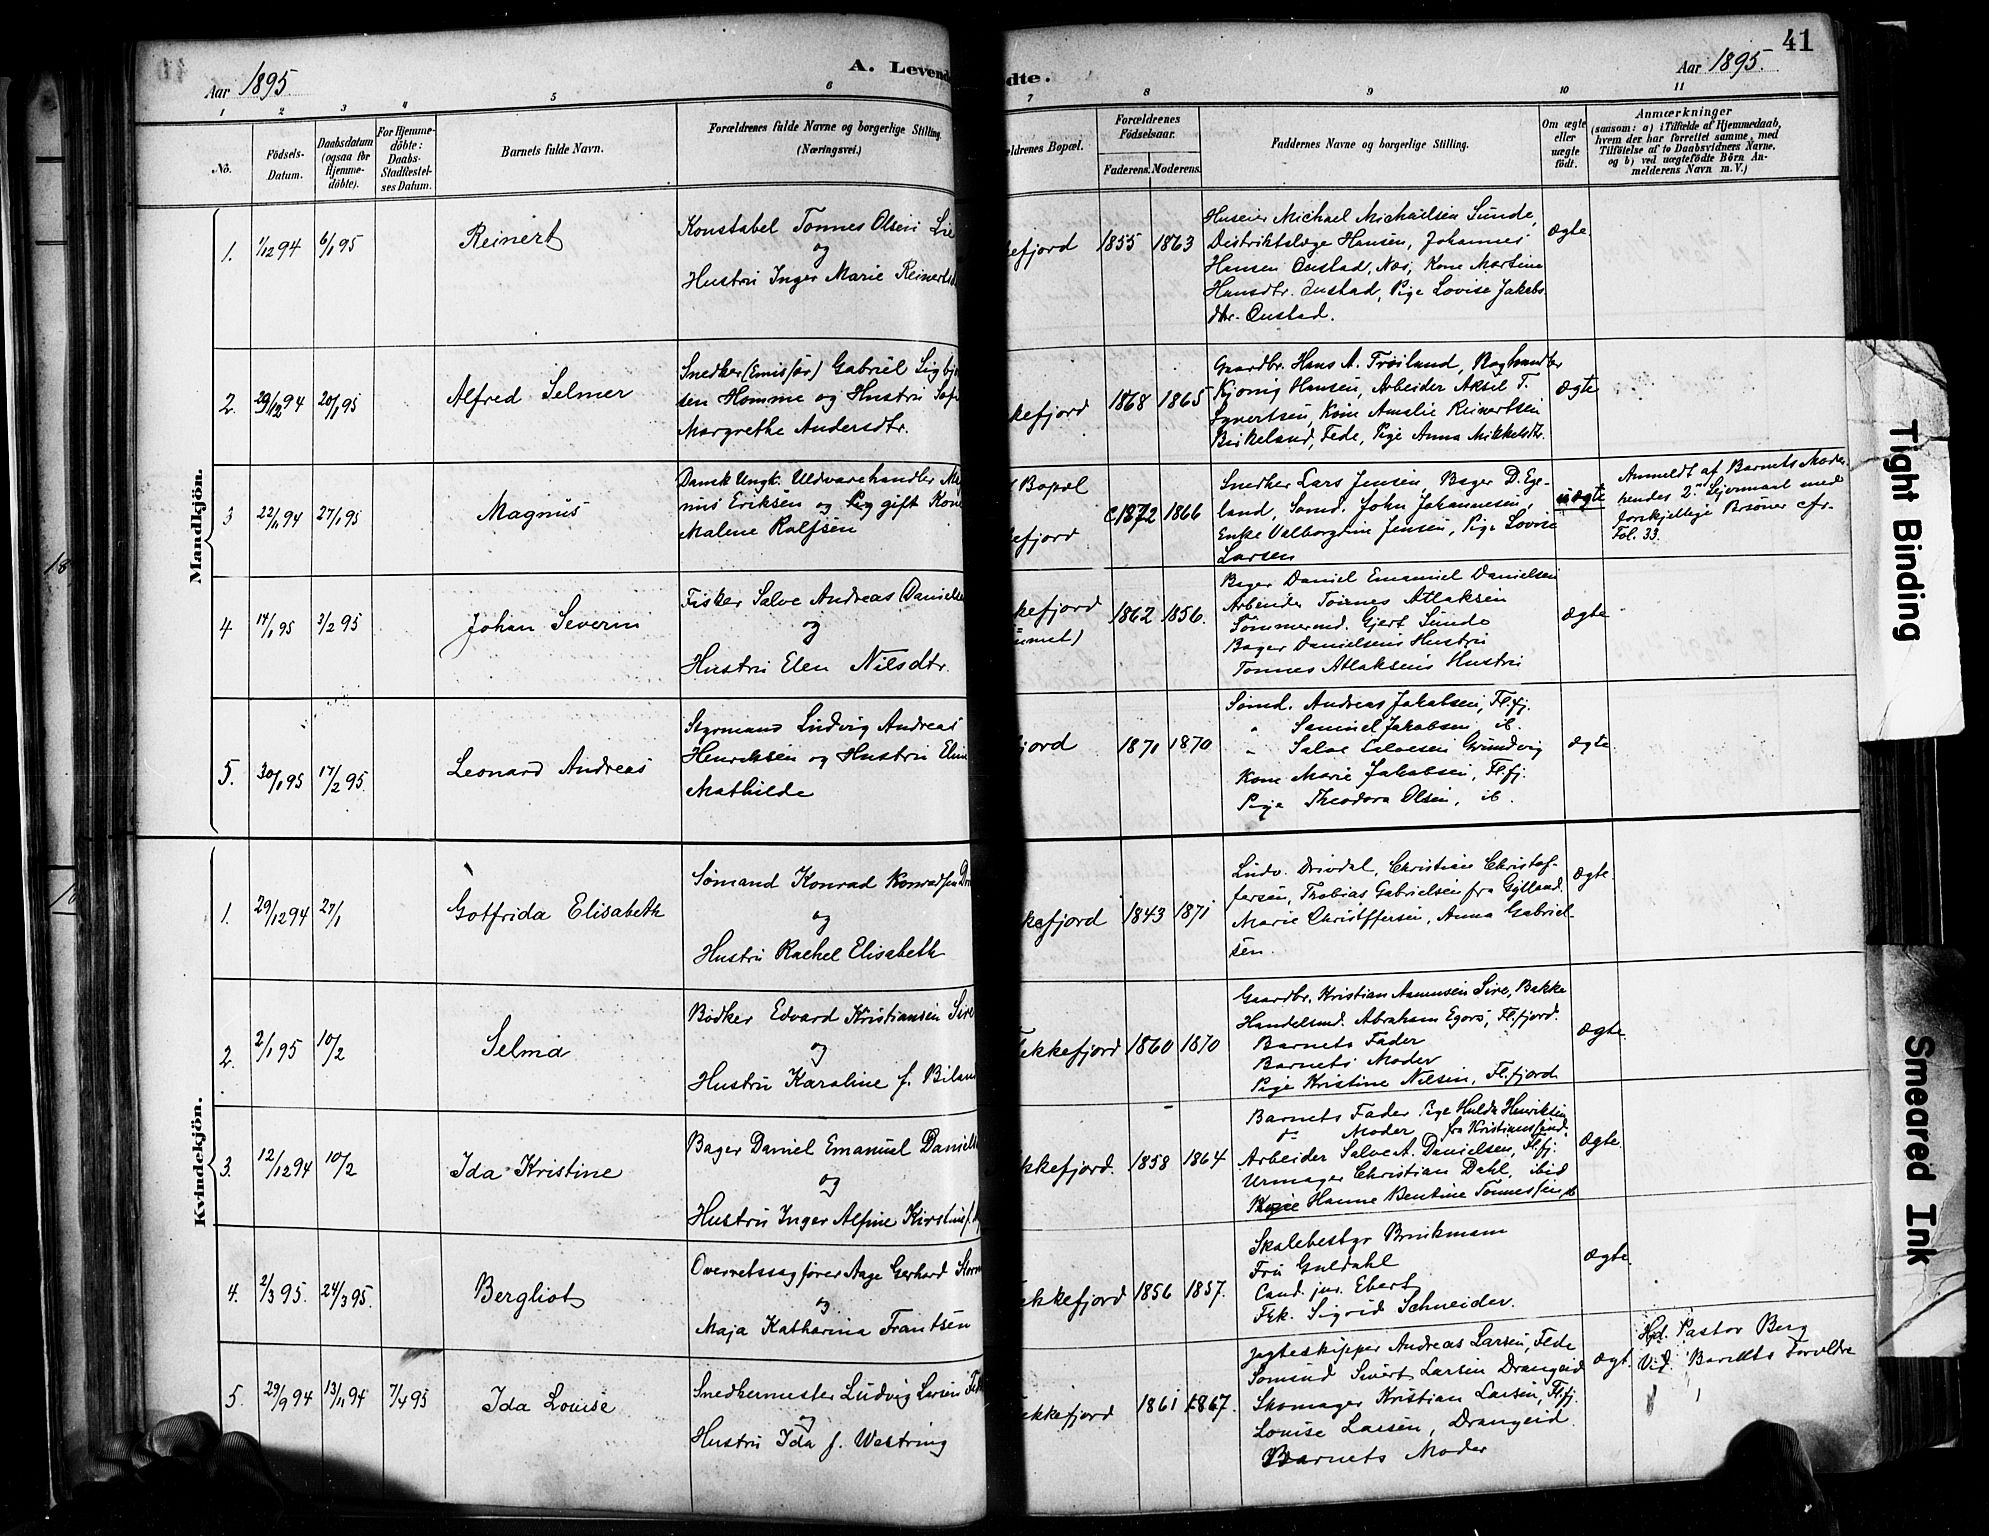 41
Aar 1895.
A. Levende
dte.
Aar 1895.
1 2 3 4 5 6 7 8 9 10 11
No.
Födsels-
Datum.
Daabsdatum
(ogsaa for
Hjemme-
döbte).
For Hjemme-
döbte:
Daabs-
Stadfæstel-
ses Datum.
Barnets fulde Navn.
Forældrenes fulde Navne og borgerlige Stilling.
(Næringsvei.)
ldrenes Bopæl.
Forældrenes
Födselsaar.
Faderens. Moderens.
Faddernes Navne og borgerlige Stilling.
Om ægte
eller
uægte
født.
Anmærkninger
(saasom: a) i Tilfælde af Hjemmedaab,
hvem der har forrettet samme, med
Tilföielse af to Daabsvidners Navne,
og b) ved uægtefödte Börn An-
melderens Navn m. V.)
Mandkjön.
1. 1/12 94 6/1 95
Reinert
Konstabel Tønnes Olsen Lie
og
Hustru Inger Marie Reinertsd
efjord 1855 1863
Huseier Michael Michailsen Sunde,
Distriktslæge Hansen, Johannes
Hansen Oustad, Næs, Kone Martine
Hansdtr. Oustad, Pige Lovise Jakobs
dtr. Oustad.
ægte.
2. 29/12 94 20/1 95
Alfred Selmer
Snedker (Emissær) Gabriel Sigbjør
sen Homme og Hustru Sof
Margrethe Andersdtr.
kefjord 1868 1865
Gaardbr. Hans A. Trøiland, Boghandler
Kjønig Hansen, Arbeider Aksel T.
Syvertsen, Kone Amalie Reinertsen
Birkeland, Fede, Pige Anna Mikkelsdtr.
ægte
3 22/11 94 27/1 95
Magnus
Dansk Ungk. Uldvarehandler Mag
nus Eriksen og gift Kone
Malene Ralfsen
Bopæl
efjord c.1872 1866
Snedker Lars Jensen, Bager D. Ege-
land, Sømd. John Johannesen,
Enke Valborgine Jensen, Pige Lovise
Larsen
uægte
Anmeldt af Barnets Moder
hendes 2. Leiermaal med
forskjellige Personer cfr.
Fol. 33.
4 14/1 95 3/2 95
Johan Severin
Fisker Salve Andreas Danielse
og
Hustru Elen Nilsdtr.
kefjord 1862 1856.
Bager Daniel Emanuel Danielsen
Arbeider Tønnes Atlaksen
Tømmermd. Gjert Sunde
Bager Danielsens Hustru
Tønnes Atlaksens Hustru
ægte
5. 30/1 95 17/2 95.
Leonard Andreas
Styrmand Ludvig Andreas
Henriksen og Hustru Eline
Mathilde
jord 1871 1870
Sømd. Andreas Jakobsen, Fl.fj.
" Samuel Jakobsen ib
" Salve Salvesen Grundvig
Kone Marie Jakobsen, Fl.fj.
Pige Theodora Olsen, ib.
ægte
Kvindekjön.
1. 29/12 94 27/1
Gotfrida Elisabeth
Sømand Konrad Konradsen
og
Hustru Rachel Elisabeth
kefjord 1843 1871
Ludv. Drivdal, Christian Christof-
fersen, Thobias Gabrielsen fra Gylland.
Marie Christffersen, Anna Gabriel-
sen.
ægte
2. 2/1 95 10/2
Selma
Bødker Edvard Kristiansen Sire
og
Hustru Karoline f. Biland
ekkefjord 1860 1870
Gaardbr. Kristian Aamunsen Sire, Bakke
Handelsmd. Abraham Egers, Fl.fjord.
Barnets Fader
Barnets Moder
Pige Kristine Nilsen, Fl.fjord
ægte.
3. 12/12 94 10/2
Ida Kristine
Bager Daniel Emanuel Daniels
og
Hustru Inger Alfine Kirstine f.
kkefjord. 1858 1864
Barnets Fader Pige Hulda Henriksen
" Moder fra Kristianssand.
Arbeider Salve A. Danielsen, Fl.fj.
Urmager Christian Dahl, ibid
Pige Hanne Bentine Tønnessen, ib
ægte.
4. 2/3 95. 24/3 95.
Bergliot
Overretssagfører Aage Gerhard Storm
og
Maja Katharina Frantsen
ekkefjord 1856 1857.
Skolebestyr Brinkmann
Fru Guldahl
Cand. jur. Ebert
Frk. Sigrid Schneider.
ægte.
5. 29/9 94 13/11 94 7/4 95
Ida Louise
Snedkermester Ludvig Larsen
og
Hustru Ida f. Westring
ekkefjord 1861 1867.
Jagteskipper Andreas Larsen, Fede
Sømand Sivert Larsen Drangeid
Skomager Kristian Larsen, Fl.fj.
Louise Larsen, Drangeid.
Barnets Moder
ægt.
Hjd. Pastor Berg
Vid. Barnets Forældre
Tight Binding
Smeared Ink